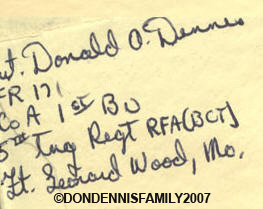 vt. Donald O. Dennis
FR 171
Co A 1st BN
5th Tng Regt RFA (BCT)
Ft. Leonard Wood, Mo.
©DONDENNISFAMILY2007